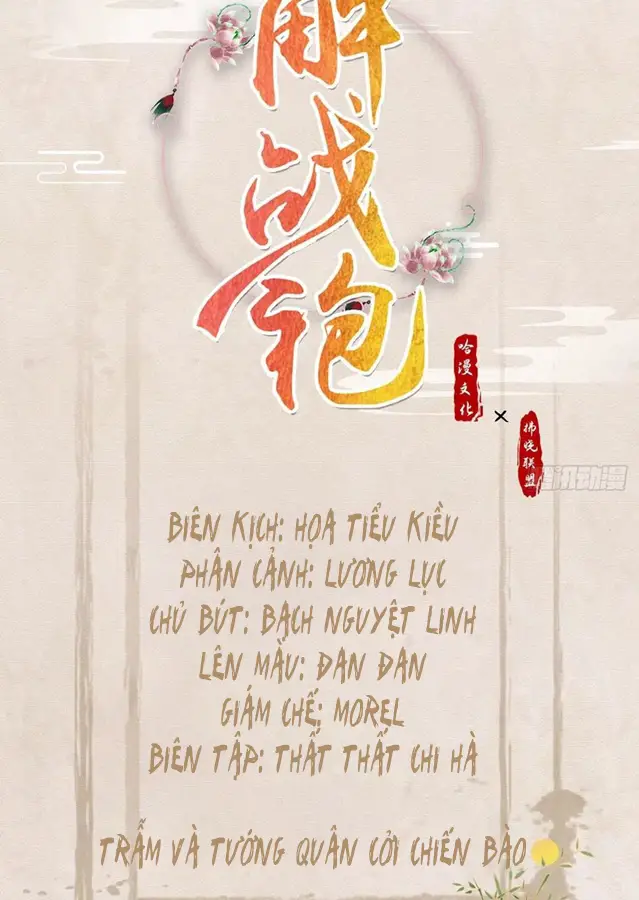 解
战
袍
哈漫文化
×
拂晓联盟
BIÊN KỊCH: HỌA TIỂU KIỀU
PHÂN CẢNH: LƯƠNG LỤC
CHỦ BÚT: BẠCH NGUYỆT LINH
LÊN MÀU: ĐAN ĐAN
GIÁM CHẾ: MOREL
BIÊN TẬP: THẤT THẤT CHI HÀ
TRẪM VÀ TƯỚNG QUÂN CỞI CHIẾN BÀO